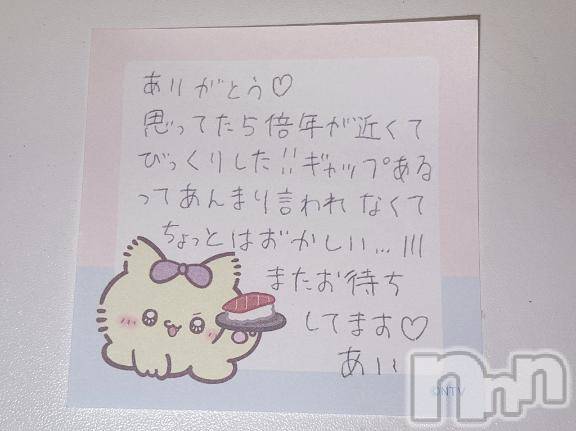 ありがとう♡
思ってたら倍年が近くて
びっくりした!!ギャップある
ってあんまり言われなくて
ちょっとはおかしい…///
またお待ち
してます♡
あい
©NTV
nnn